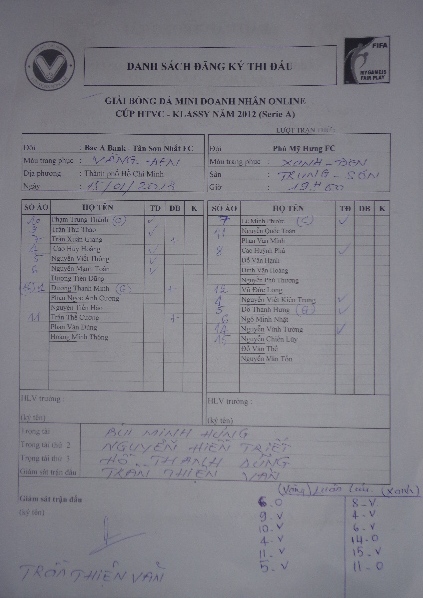 DANH SÁCH ĐĂNG KÝ THI ĐẤU
FIFA
MY GAME IS FAIR PLAY
GIẢI BÓNG ĐÁ MINI DOANH NHÂN ONLINE
CÚP HTVC - KLASSY NĂM 2012 (Serie A)
LƯỢT TRẬN
Đội : Bac A Bank - Tân Sơn Nhất FC
Màu trang phục : VÀNG - ĐEN
Địa phương : Thành phố Hồ Chí Minh
Ngày
Đội : Phú Mỹ Hưng FC
Màu trang phục : XANH - ĐEN
Sân : TRUNG - SƠN
Giờ : 19H00
SỐ ÁO HỌ TÊN TĐ DB K
10 Phạm Trung Thành (C)
Trần Thế Thảo
Trần Xuân Giang
Cao Huy Hoàng
5 Nguyễn Việt Thắng
6 Nguyễn Mạnh Toàn
Dương Tiến Dũng
Dương Thanh Minh (G)
Phan Ngọc Anh Cương
Nguyễn Tiến Hào
11 Trần Thế Cường
Phan Văn Dũng
Hoàng Minh Thông
SỐ ÁO HỌ TÊN TĐ DB K
7 Lê Minh Phước (C)
11 Nguyễn Quốc Toàn
Phan Văn Minh
8 Cao Huỳnh Phú
Đỗ Văn Hạnh
Đinh Văn Hoàng
Nguyễn Phú Thương
12 Võ Đức Long
4 Nguyễn Việt Kiên Trung
5 Đỗ Thành Hưng (G)
6 Ngô Minh Nhật
14 Nguyễn Vĩnh Tường
15 Nguyễn Chiến Lũy
Đỗ Văn Thể
Nguyễn Văn Tôn
HLV trưởng :
(ký tên)
HLV trưởng :
(ký tên)
Trọng tài BÙI MINH HÙNG
Trọng tài thứ 2 NGUYỄN HIỀN TRIẾT
Trọng tài thứ 3 HỒ THANH DŨNG
Giám sát trận đấu TRẦN THIỆN VĂN
Giám sát trận đấu
(ký tên)
(Vàng) Luân Lưu (Xanh)
6. O 8 - V
9. V 4 - V
10. V 6 - V
4 - V 14 - O
11 - V 15 - V
5 - V 11 - O
TRẦN THIỆN VĂN